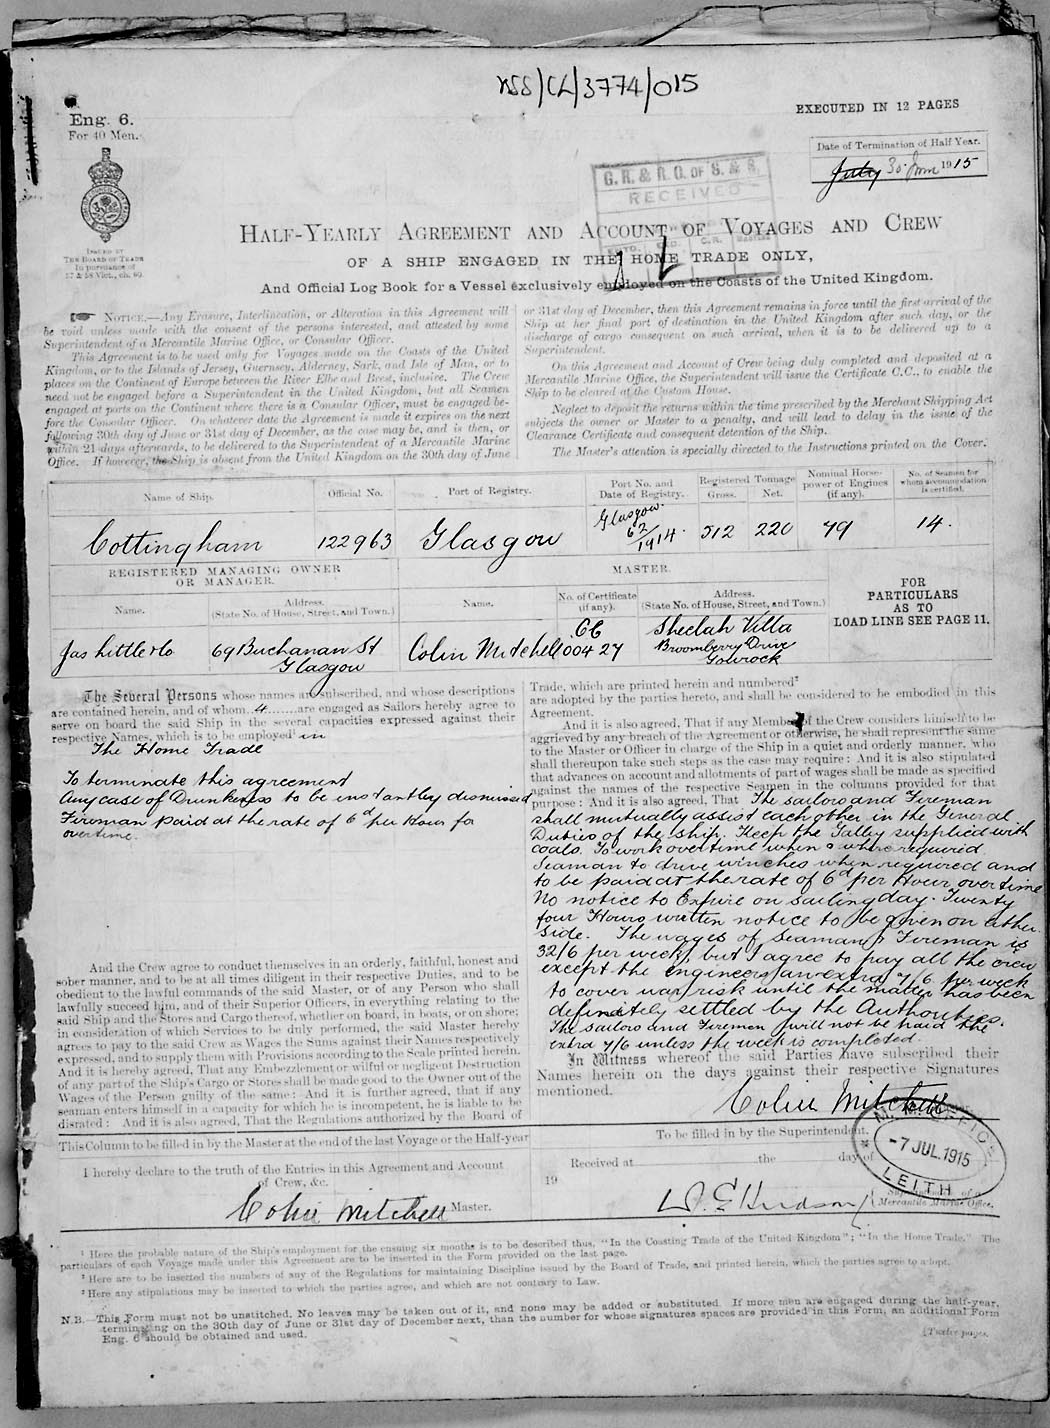 NSS/CL/3774/015
EXECUTED IN 12 PAGES
Eng. 6.
For 40 Men.
Date of Termination of Half Year.
July 30 June 1915
ISSUED BY
THE BOARD OF TRADE
In pursuance of
57 & 58 Vict., ch. 60.
G. R. & R. G. OF S. & S.
RECEIVED
HALF-YEARLY AGREEMENT AND ACCOUNT OF VOYAGES AND CREW
OF A SHIP ENGAGED IN THE HOME TRADE ONLY,
And Official Log Book for a Vessel exclusively employed on the Coasts of the United Kingdom.
NOTICE.—Any Erasure, Interlineation, or Alteration in this Agreement will
be void unless made with the consent of the persons interested, and attested by some
Superintendent of a Mercantile Marine Office, or Consular Officer.
This Agreement is to be used only for Voyages made on the Coasts of the United
Kingdom, or to the Islands of Jersey, Guernsey, Alderney, Sark, and Isle of Man, or to
places on the Continent of Europe between the River Elbe and Brest, inclusive. The Crew
need not be engaged before a Superintendent in the United Kingdom, but all Seamen
engaged at ports on the Continent where there is a Consular Officer, must be engaged be-
fore the Consular Officer. On whatever date the Agreement is made it expires on the next
following 30th day of June or 31st day of December, as the case may be, and is then, or
within 21 days afterwards, to be delivered to the Superintendent of a Mercantile Marine
Office. If however, the Ship is absent from the United Kingdom on the 30th day of June
or 31st day of December, then this Agreement remains in force until the first arrival of the
Ship at her final port of destination in the United Kingdom after such day, or the
discharge of cargo consequent on such arrival, when it is to be delivered up to a
Superintendent.
On this Agreement and Account of Crew being duly completed and deposited at a
Mercantile Marine Office, the Superintendent will issue the Certificate C.C., to enable the
Ship to be cleared at the Custom House.
Neglect to deposit the returns within the time prescribed by the Merchant Shipping Act
subjects the owner or Master to a penalty, and will lead to delay in the issue of the
Clearance Certificate and consequent detention of the Ship.
The Master's attention is specially directed to the Instructions printed on the Cover.
Name of Ship. Official No. Port of Registry. Port No. and Date of Registry. Registered Tonnage Gross. Net. Nominal Horse-power of Engines (if any). No. of Seamen for whom accommodation is certified.
Cottingham 122963 Glasgow Glasgow. 62/1914. 512 220 79 14.
REGISTERED MANAGING OWNER
OR MANAGER.
MASTER.
FOR
PARTICULARS
AS TO
LOAD LINE SEE PAGE 11.
Name. Address. (State No. of House, Street, and Town.) Name. No. of Certificate (if any). Address. (State No. of House, Street, and Town.)
Jas Little & Co 69 Buchanan St Glasgow Colin Mitchell 00427 Sheelah Villa Broomberry Drive Gourock
The Several Persons whose names are subscribed, and whose descriptions
are contained herein, and of whom 4 are engaged as Sailors hereby agree to
serve on board the said Ship in the several capacities expressed against their
respective Names, which is to be employed¹ in
The Home Trade
To terminate this agreement
Any case of Drunkeness to be instantley dismissed
Fireman paid at the rate of 6d per Hour for
overtime.
And the Crew agree to conduct themselves in an orderly, faithful, honest and
sober manner, and to be at all times diligent in their respective Duties, and to be
obedient to the lawful commands of the said Master, or of any Person who shall
lawfully succeed him, and of their Superior Officers, in everything relating to the
said Ship and the Stores and Cargo thereof, whether on board, in boats, or on shore;
in consideration of which Services to be duly performed, the said Master hereby
agrees to pay to the said Crew as Wages the Sums against their Names respectively
expressed, and to supply them with Provisions according to the Scale printed herein.
And it is hereby agreed, That any Embezzlement or wilful or negligent Destruction
of any part of the Ship's Cargo or Stores shall be made good to the Owner out of the
Wages of the Person guilty of the same: And it is further agreed, that if any
seaman enters himself in a capacity for which he is incompetent, he is liable to be
disrated: And it is also agreed, That the Regulations authorized by the Board of
Trade, which are printed herein and numbered²
are adopted by the parties hereto, and shall be considered to be embodied in this
Agreement.
And it is also agreed, That if any Member of the Crew considers himself to be
aggrieved by any breach of the Agreement or otherwise, he shall represent the same
to the Master or Officer in charge of the Ship in a quiet and orderly manner, who
shall thereupon take such steps as the case may require: And it is also stipulated
that advances on account and allotments of part of wages shall be made as specified
against the names of the respective Seamen in the columns provided for that
purpose: And it is also agreed, That The sailors and Fireman
shall mutually assist each other in the General
Duties of the ship. Keep the Galley supplied with
coals. To work overtime when & where required.
Seaman to drive winches when required and
to be paid at the rate of 6d per Hour over time
No notice to Expire on sailing day. Twenty
four Hours written notice to be given on either
side. The wages of Seaman & Fireman is
32/6 per week, but I agree to pay all the crew
except the engineers an extra 7/6 per week
to cover war risk until the matter has been
definetely settled by the Authorities.
The sailors and Firemen will not be paid the
extra 7/6 unless the week is completed.
In Witness whereof the said Parties have subscribed their
Names herein on the days against their respective Signatures
mentioned.
Colin Mitchell
This Column to be filled in by the Master at the end of the last Voyage or the Half-year
I hereby declare to the truth of the Entries in this Agreement and Account
of Crew, &c.
Colin Mitchell Master.
To be filled in by the Superintendent.
Received at the day of
19
M. M. OFFICE
-7 JUL. 1915
LEITH
Superintendent of a
Mercantile Marine Office.
¹ Here the probable nature of the Ship's employment for the ensuing six months is to be described thus, "In the Coasting Trade of the United Kingdom"; "In the Home Trade." The
particulars of each Voyage made under this Agreement are to be inserted in the Form provided on the last page.
² Here are to be inserted the numbers of any of the Regulations for maintaining Discipline issued by the Board of Trade, and printed herein, which the parties agree to adopt.
³ Here any stipulations may be inserted to which the parties agree, and which are not contrary to Law.
N.B.—This Form must not be unstitched. No leaves may be taken out of it, and none may be added or substituted. If more men are engaged during the half-year,
terminating on the 30th day of June or 31st day of December next, than the number for whose signatures spaces are provided in this Form, an additional Form
Eng. 6 should be obtained and used.
[Twelve pages.